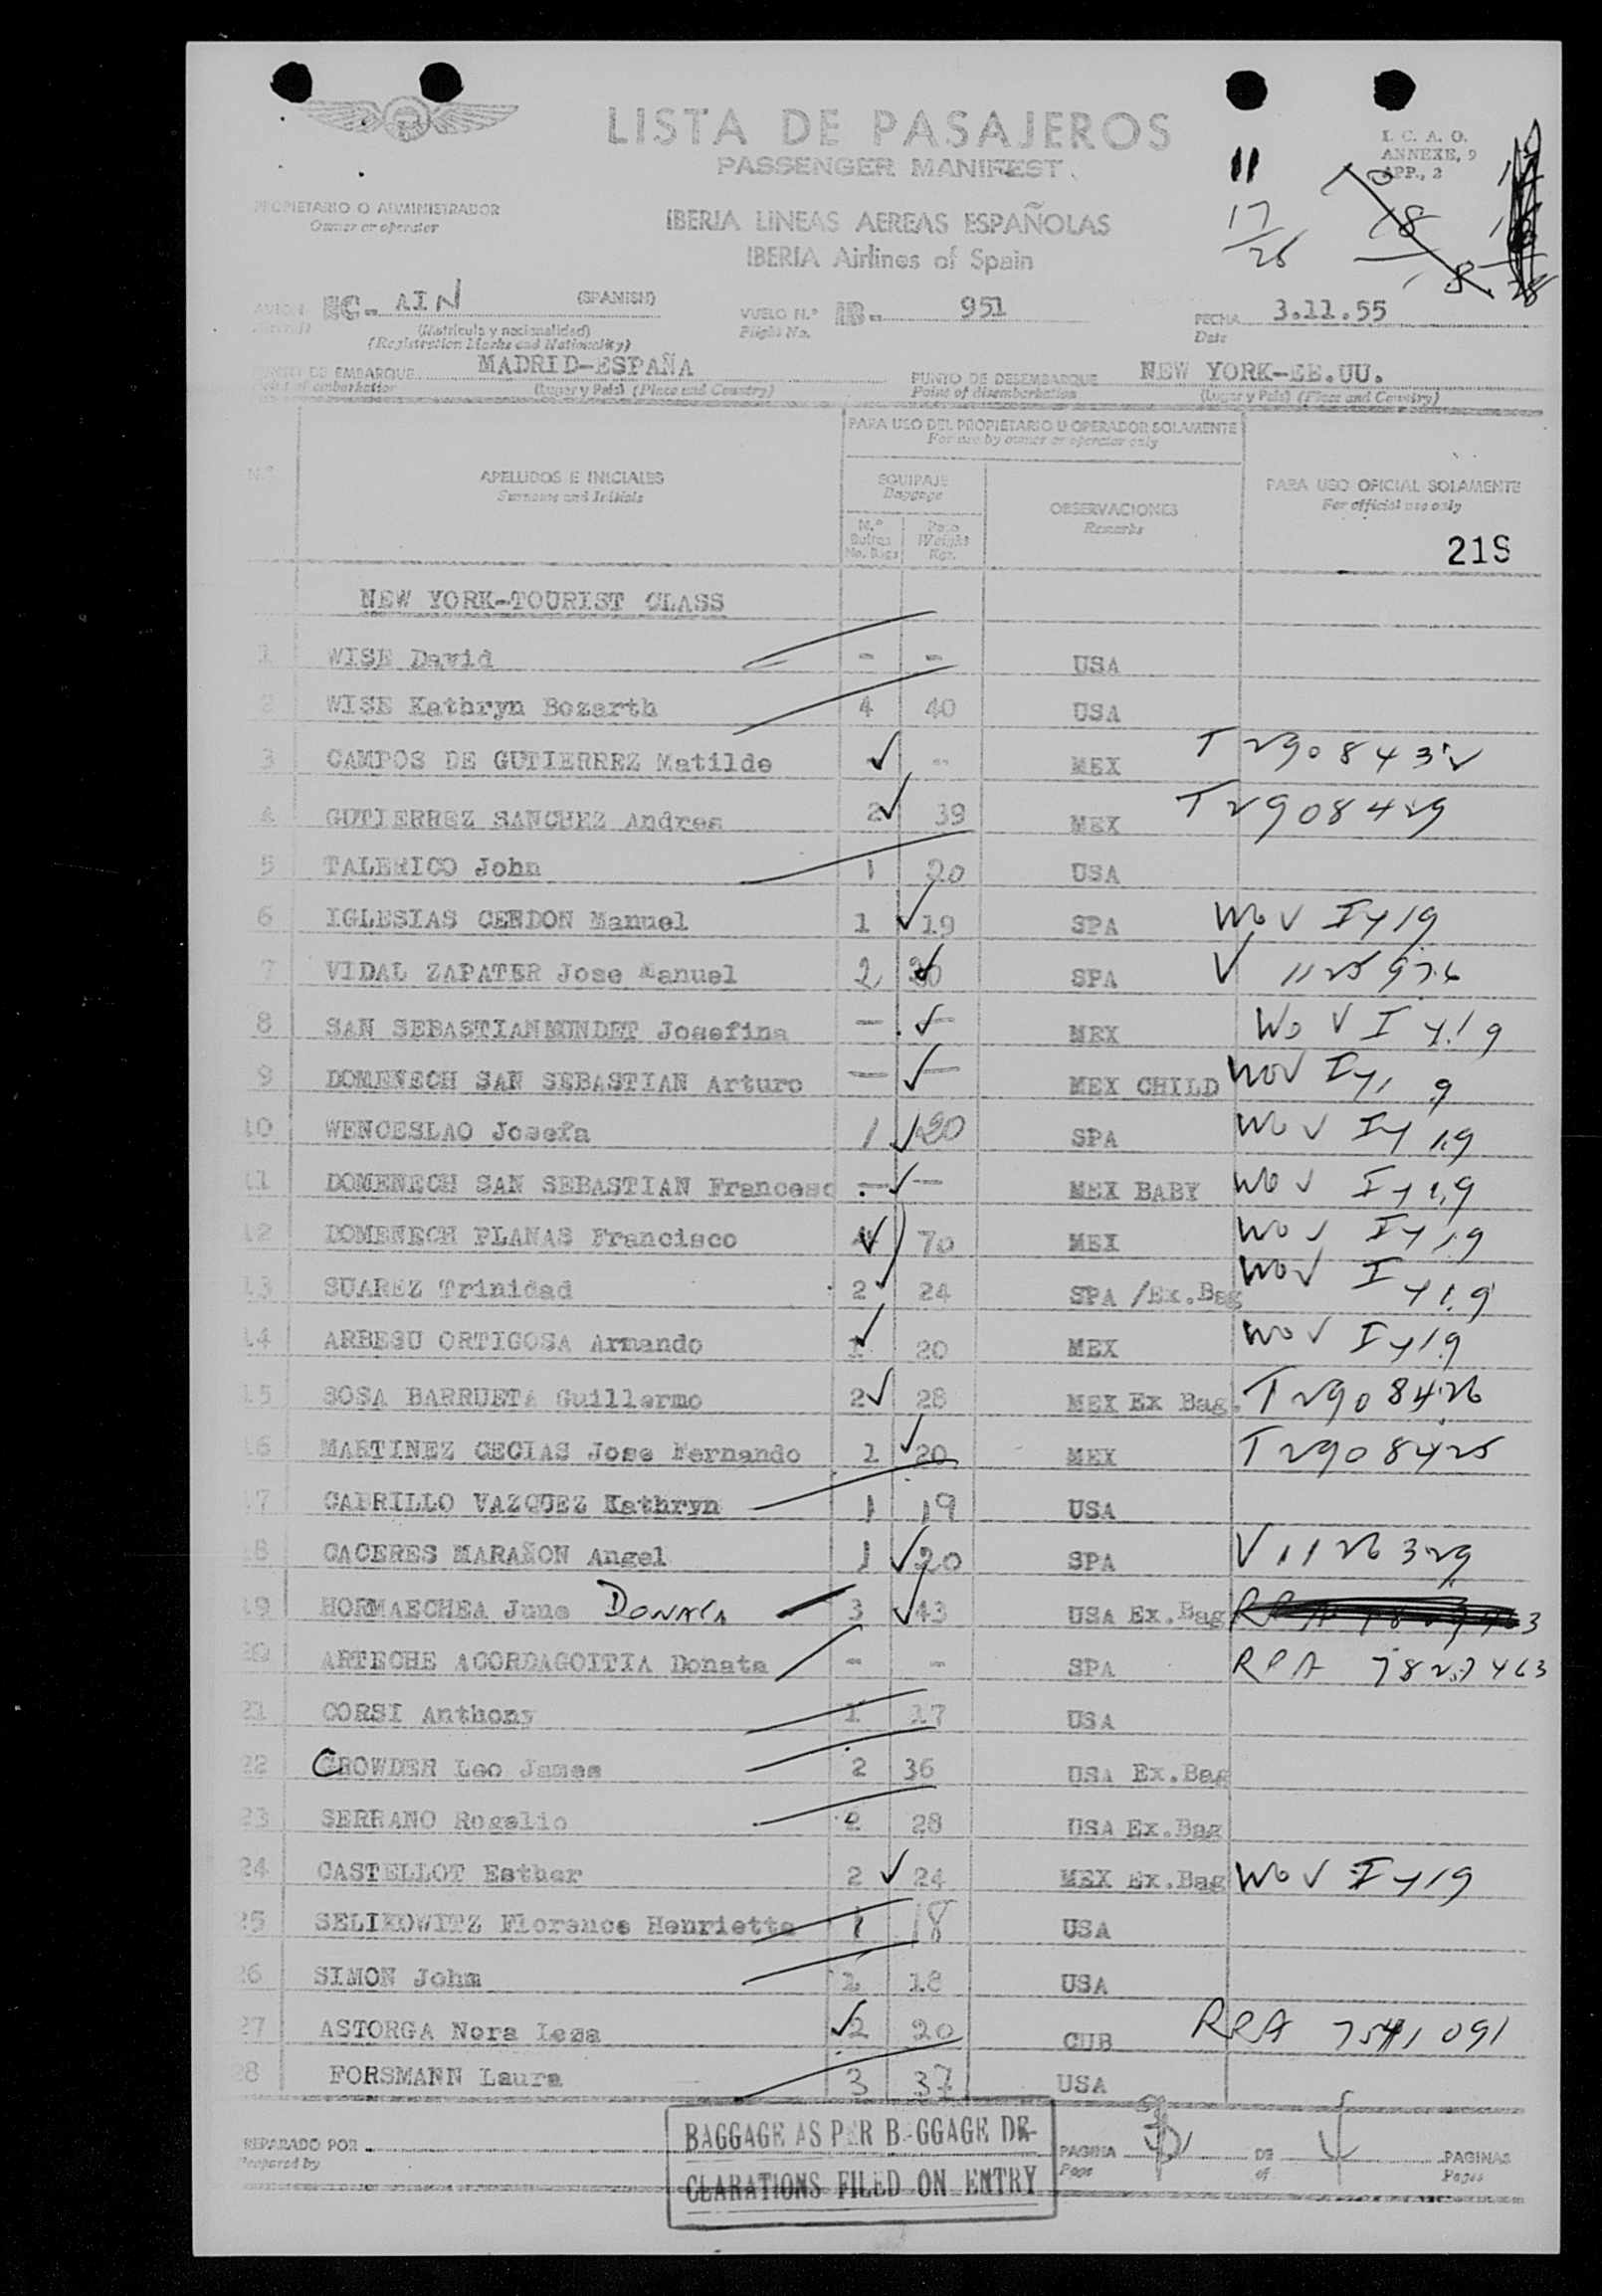 LISTA DE PASAJEROS
PASSENGER MANIFEST
I. C. A. O.
ANNEXE, 9
APP., 2
11
17
26
18
PROPIETARIO O ADMINISTRADOR
Owner or operator
IBERIA LINEAS AEREAS ESPAÑOLAS
IBERIA Airlines of Spain
AVION EC- AIN (SPANISH) VUELO N.º IB- 951 FECHA 3.11.55
(Matrícula y nacionalidad) Flight No. Date
(Registration Marks and Nationality)
PUNTO DE EMBARQUE MADRID-ESPAÑA PUNTO DE DESEMBARQUE NEW YORK-EE.UU.
Point of embarkation (Lugar y País) (Place and Country) Point of disembarkation (Lugar y País) (Place and Country)
PARA USO DEL PROPIETARIO U OPERADOR SOLAMENTE
For use by owner or operator only
N.º APELLIDOS E INICIALES EQUIPAJE OBSERVACIONES PARA USO OFICIAL SOLAMENTE
Surname and Initials Baggage Remarks For official use only
N.º Bultos Peso
No. Bags Weight Kgr.
21S
NEW YORK-TOURIST CLASS
1 WISE David - - USA
2 WISE Kathryn Bozarth 4 40 USA
3 CAMPOS DE GUTIERREZ Matilde - MEX T 290843
4 GUTIERREZ SANCHEZ Andres 2 39 MEX T 2908429
5 TALERICO John 1 20 USA
6 IGLESIAS CENDON Manuel 1 19 SPA WO V I 4/19
7 VIDAL ZAPATER Jose Manuel 2 20 SPA V 1125976
8 SAN SEBASTIANMUNDET Josefina — — MEX WO V I 4/19
9 DOMENECH SAN SEBASTIAN Arturo — — MEX CHILD WO V I 4/19
10 WENCESLAO Josefa 1 20 SPA WO V I 4/19
11 DOMENECH SAN SEBASTIAN Francesc — — MEX BABY WO V I 4/19
12 DOMENECH PLANAS Francisco 4 70 MEX WO V I 4/19
13 SUAREZ Trinidad 2 24 SPA /Ex.Bag WO V I 4/19
14 ARBESU ORTIGOSA Armando 1 20 MEX WO V I 4/19
15 SOSA BARRUETA Guillermo 2 28 MEX Ex Bag. T 2908426
16 MARTINEZ CECIAS Jose Fernando 1 20 MEX T 2908425
17 CARRILLO VAZQUEZ Kathryn 1 19 USA
18 CACERES MARAÑON Angel 1 20 SPA V 1126329
19 HORMAECHEA June 3 43 USA Ex.Bag
20 ARTECHE ACORDAGOITIA Donata - - SPA RPA 7827463
21 CORSI Anthony 1 17 USA
22 CROWDER Leo James 2 36 USA Ex.Bag
23 SERRANO Rogelio 2 28 USA Ex.Bag
24 CASTELLOT Esther 2 24 MEX Ex.Bag WO V I 4/19
25 SELIKOWITZ Florence Henrietta 1 18 USA
26 SIMON John 1 18 USA
27 ASTORGA Nora Lesa 2 20 CUB RRA 7541091
28 FORSMANN Laura 3 37 USA
BAGGAGE AS PER BAGGAGE DE-
CLARATIONS FILED ON ENTRY
PREPARADO POR PAGINA DE 4 PAGINAS
Prepared by Page of Pages